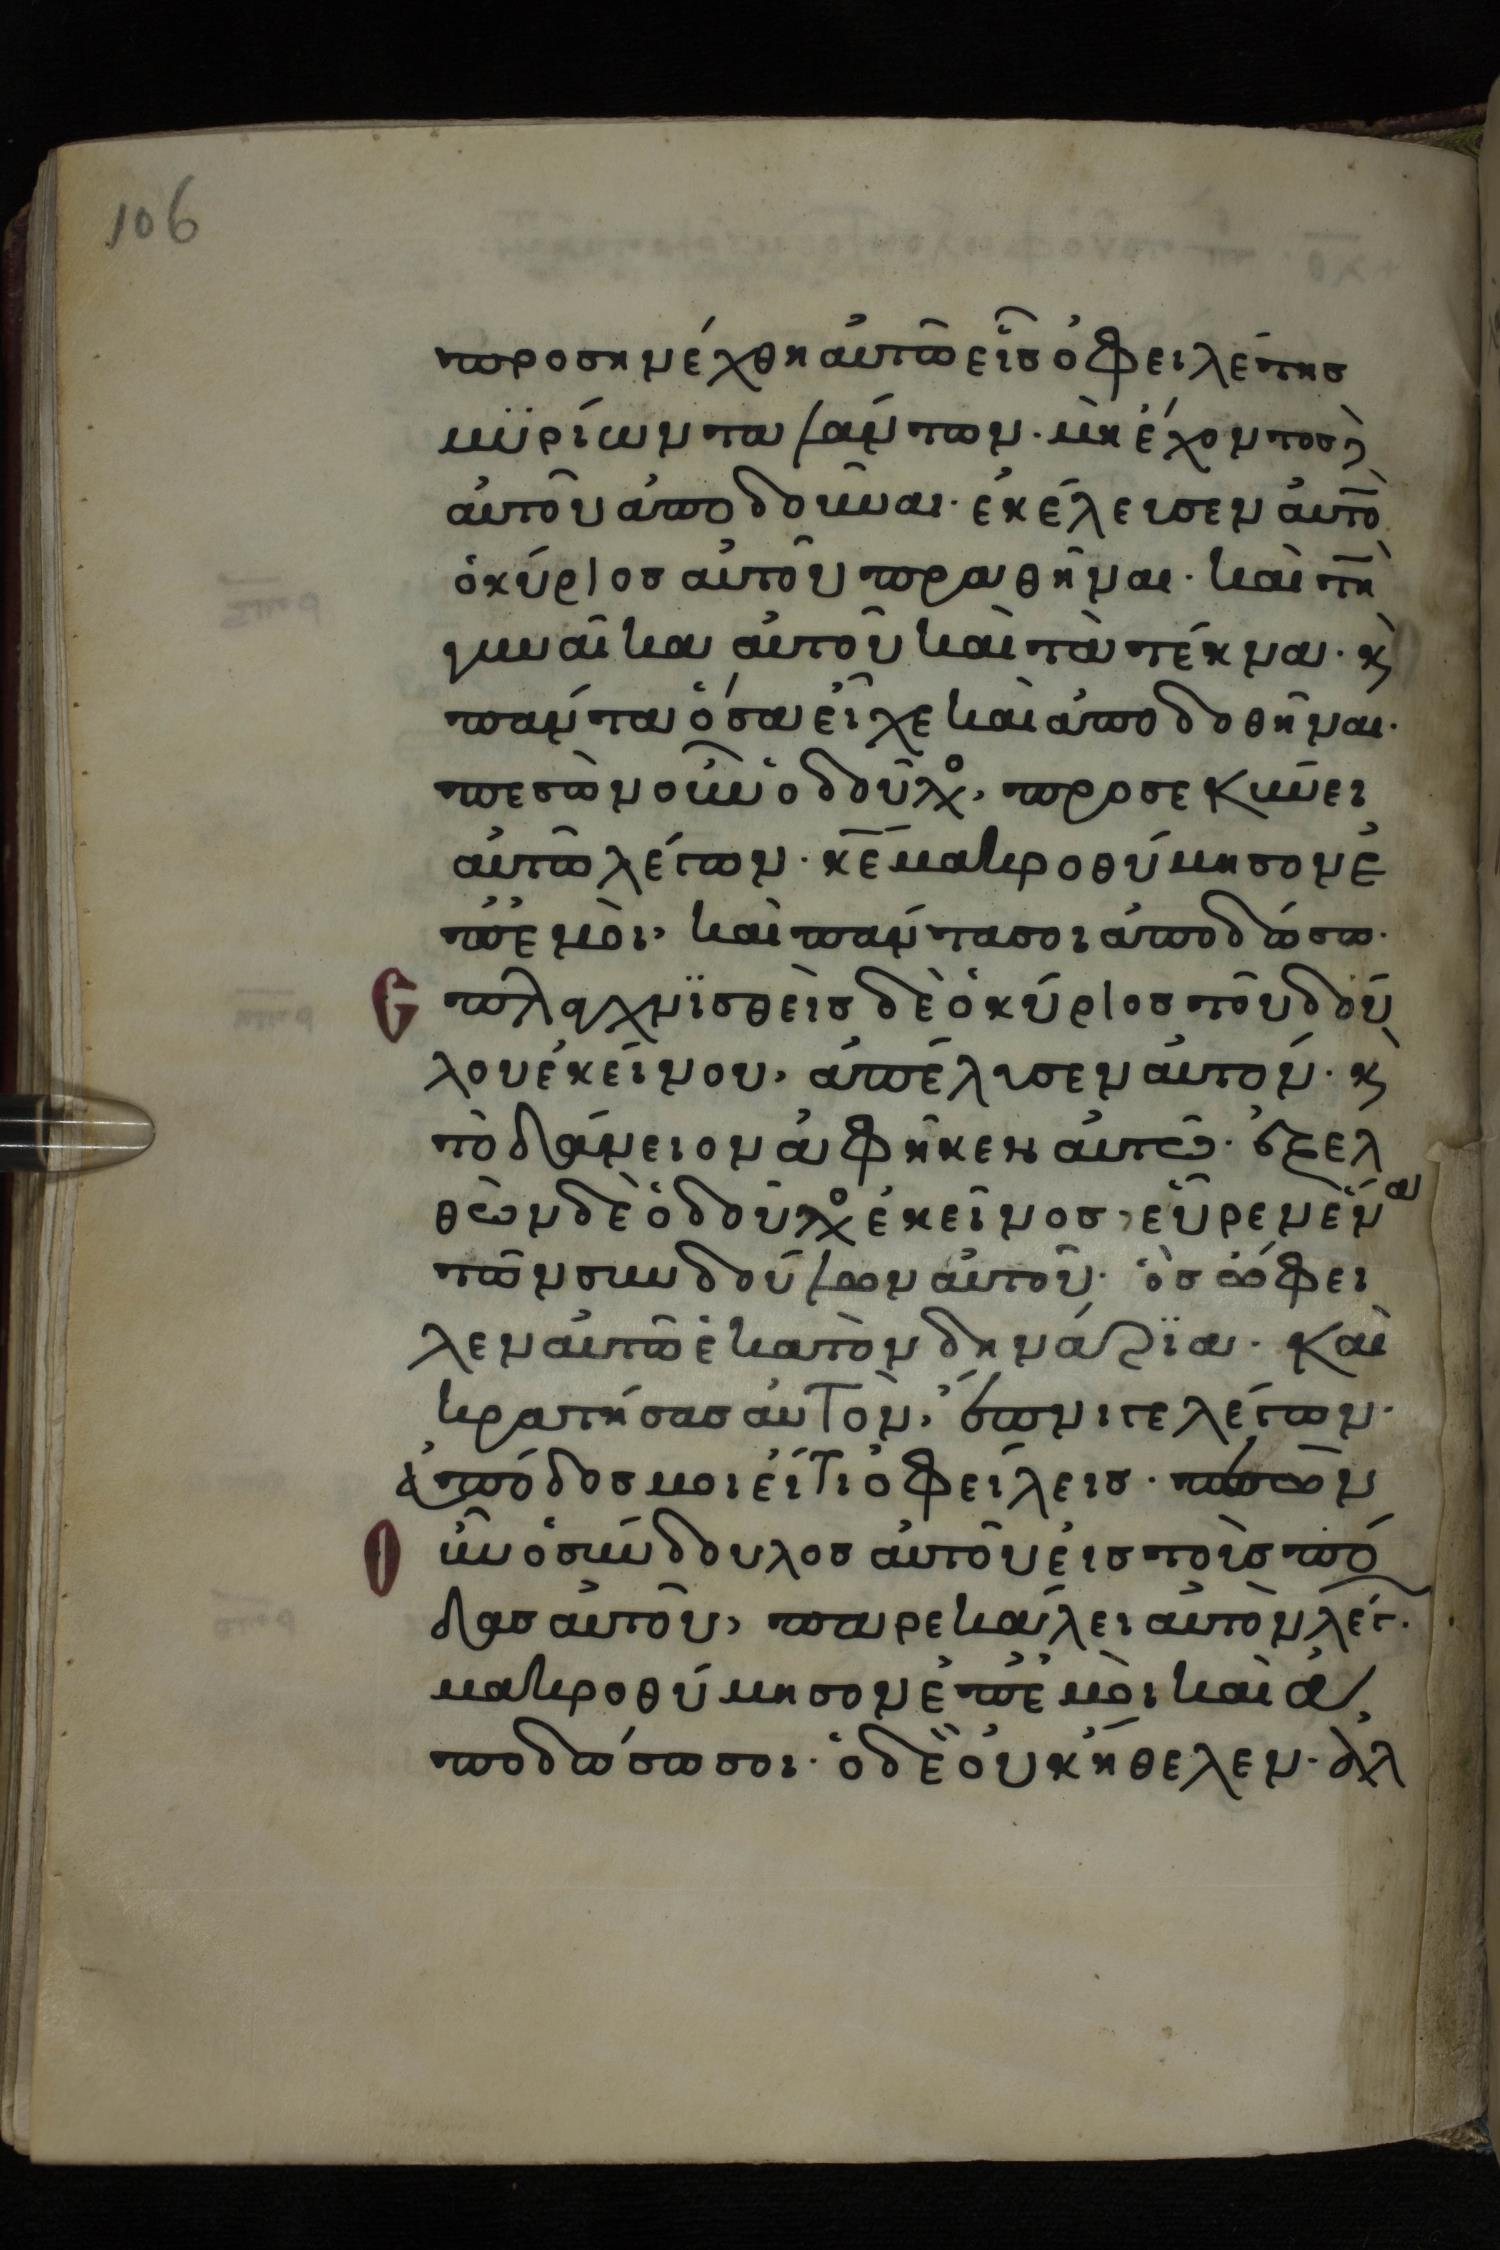 106
προσηνέχθη αὐτῶ εἷς ὀφειλέτης
μϋρίων ταλάντων. μὴ ἔχοντος δὲ
αὐτοῦ ἀποδοῦναι. ἐκέλευσεν αὐτὸ
ὁ κύριος αὐτοῦ πραθῆναι. καὶ τὴ
γυναῖκα αὐτοῦ καὶ τὰ τέκνα. κ
πάντα ὅσα εἶχε καὶ ἀποδοθῆναι.
πεσὼν οὖν ὁ δοῦλος, προσεκύνει
αὐτῶ λέγων. κε μακροθύμησον ἐ
π' ἐμοὶ, καὶ πάντα σοι ἀποδώσω.
Σπλαγχνϊσθεὶς δὲ ὁ κύριος τοῦ δού
λου ἐκείνου, ἀπέλυσεν αὐτόν. κ
τὸ δάνειον ἀφῆκεν αὐτῶ. ἐξελ
θὼν δὲ ὁ δοῦλος ἐκεῖνος, εὗρεν ἕνα
τῶν συνδούλων αὐτοῦ. ὃς ὤφει
λεν αὐτῶ ἑκατὸν δηνάρϊα. καὶ
κρατήσας αὐτὸν, ἔπνιγε λέγων.
ἀπόδος μοι εἴ τι ὀφείλεις. πεσὼν
Οὖν ὁ σύνδουλος αὐτοῦ εἰς τοὺς πό
δας αὐτοῦ, παρεκάλει αὐτὸν λέγ.
μακροθύμησον ἐπ' ἐμοὶ καὶ ἀ
ποδώσω σοι. ὁ δὲ οὐκ ἤθελεν. ἀλ